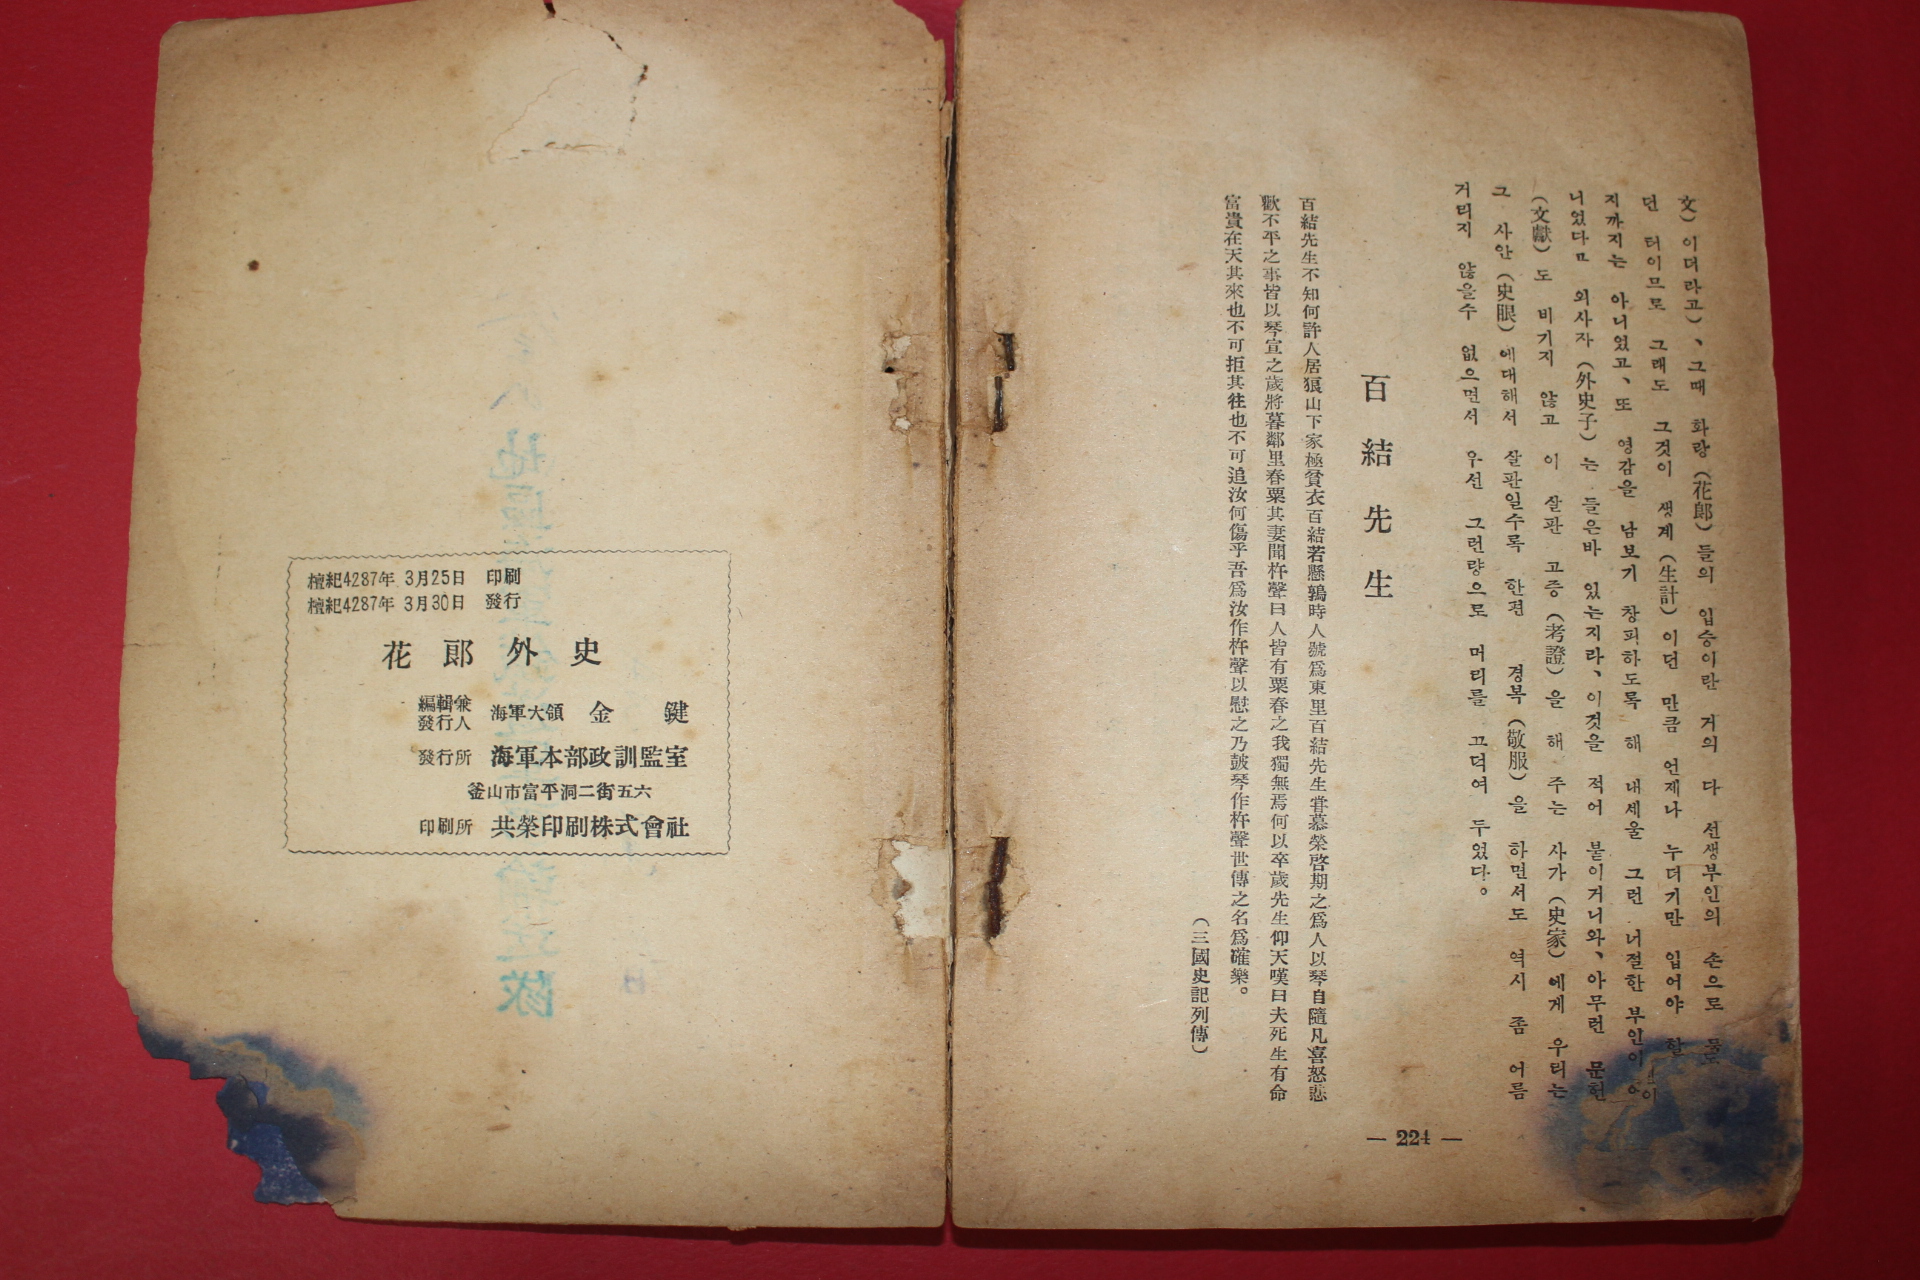 文)이더라고)、그때 화랑(花郞)들의 입승이란 거의 다 선생부인의 손으로
던 터이므로 그래도 그것이 생계(生計)이던 만큼 언제나 누더기만 입어야 할
지까지는 아니었고、또 영감을 남보기 창피하도록 해 내세울 그런 너절한 부인이
니었다ㅁ 외사자(外史子)는 들은바 있는지라、이것을 적어 붙이거니와、아무런 문헌
(文獻)도 비기지 않고 이 살판 고증(考證)을 해 주는 사가(史家)에게 우리는
그 사안(史眼)에대해서 살판일수록 한편 경복(敬服)을 하면서도 역시 좀 어름
거리지 않을수 없으면서 우선 그런량으로 머리를 끄덕여 두었다。
百結先生
百結先生不知何許人居狼山下家極貧衣百結若懸鶉時人號爲東里百結先生甞慕榮啓期之爲人以琴自隨凡喜怒悲
歡不平之事皆以琴宣之歲將暮鄰里舂粟其妻聞杵聲曰人皆有粟舂之我獨無焉何以卒歲先生仰天嘆曰夫死生有命
富貴在天其來也不可拒其往也不可追汝何傷乎吾爲汝作杵聲以慰之乃鼓琴作杵聲世傳之名爲碓樂。
(三國史記列傳)
— 224 —
檀紀4287年 3月25日 印刷
檀紀4287年 3月30日 發行
花郞外史
編輯兼發行人 海軍大領 金鍵
發行所 海軍本部政訓監室
釜山市富平洞二街五六
印刷所 共榮印刷株式會社